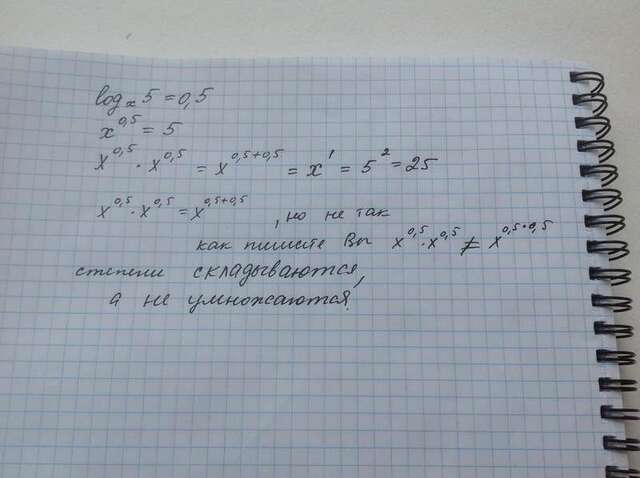 logₓ 5 = 0,5
x^0,5 = 5
x^0,5 · x^0,5 = x^0,5+0,5 = x^1 = 5^2 = 25
x^0,5 · x^0,5 = x^0,5+0,5 , но не так
как пишете Вы x^0,5 · x^0,5 ≠ x^0,5·0,5
степени складываются,
а не умножаются.